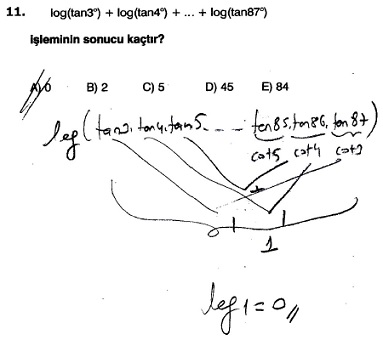 11. log(tan3°) + log(tan4°) + ... + log(tan87°)
işleminin sonucu kaçtır?
A) 0 B) 2 C) 5 D) 45 E) 84
log(tan3, tan4, tan5, - - - tan85, tan86, tan87
cot5 cot4 cot3
1
log1 = 0,,